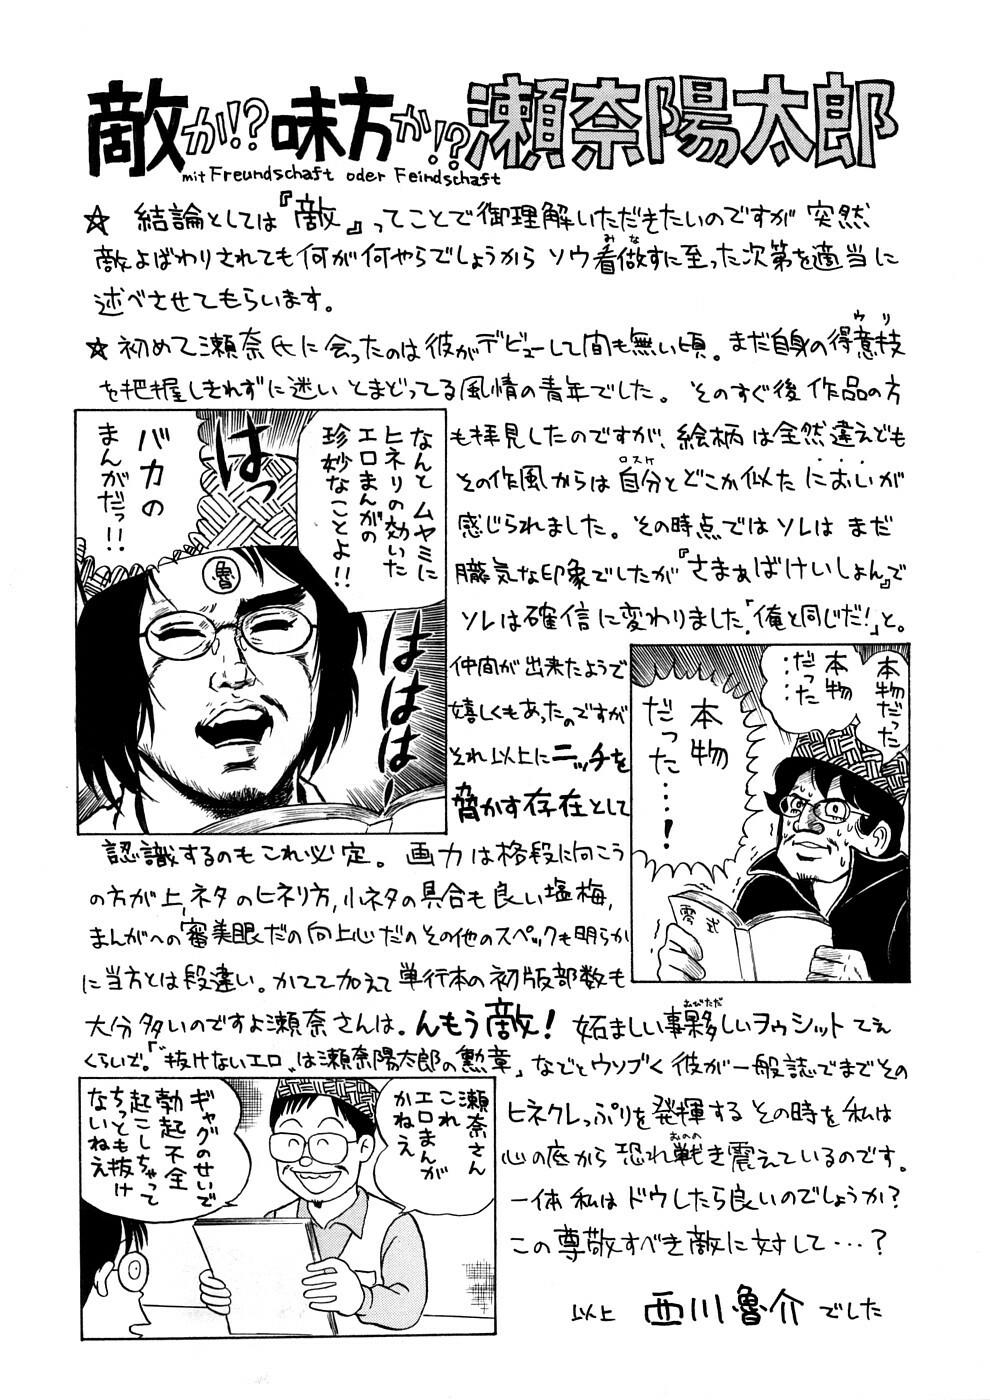 敵か!?味方か!?瀬奈陽太郎
mit Freundschaft oder Feindschaft
☆ 結論としては『敵』ってことで御理解いただきたいのですが 突然
敵よばわりされても何が何やらでしょうから ソウ看做すに至った次第を適当に
みな
述べさせてもらいます。
☆初めて瀬奈氏に会ったのは彼がデビューして間も無い頃。まだ自身の得意技
ウリ
を把握しきれずに迷い とまどってる風情の青年でした。そのすぐ後 作品の方
も拝見したのですが、絵柄は全然違えども
その作風からは自分とどこか似た においが
ロスケ
感じられました。その時点ではソレは まだ
朧気な印象でしたが『さまぁばけいしょん』で
ソレは確信に変わりました「俺と同じだ!」と。
なんと ムヤミに
ヒネリの効いた
エロまんがの
珍妙なことよ!!
はっ
バカの
まんがだっ!!
魯
ははは
仲間が出来たようで
嬉しくもあったのですが
それ以上にニッチを
脅かす存在として
本物だった
本物
だった
……
本物
だった……!
零式
認識するのもこれ必定。画力は格段に向こう
の方が上、ネタのヒネリ方,小ネタの具合も良い塩梅,
まんがへの審美眼だの向上心だのその他のスペックも明らか
に当方とは段違い。かてて加えて単行本の初版部数も
大分多いのですよ瀬奈さんは。んもう敵! 妬ましい事夥しいヲゥシットてぇ
おびただ
くらいで。「〝抜けないエロ〟は瀬奈陽太郎の勲章」などとウソブく彼が一般誌でまでその
ヒネクレっぷりを発揮するその時を私は
心の底から恐れ戦き震えているのです。
おのの
一体 私はドウしたら良いのでしょうか?
この尊敬すべき敵に対して…?
瀬奈さん
これ
エロまんが
かねえ
ギャグのせいで
勃起不全
起こしちゃって
ちっとも抜け
ないねえ
以上 西川魯介 でした